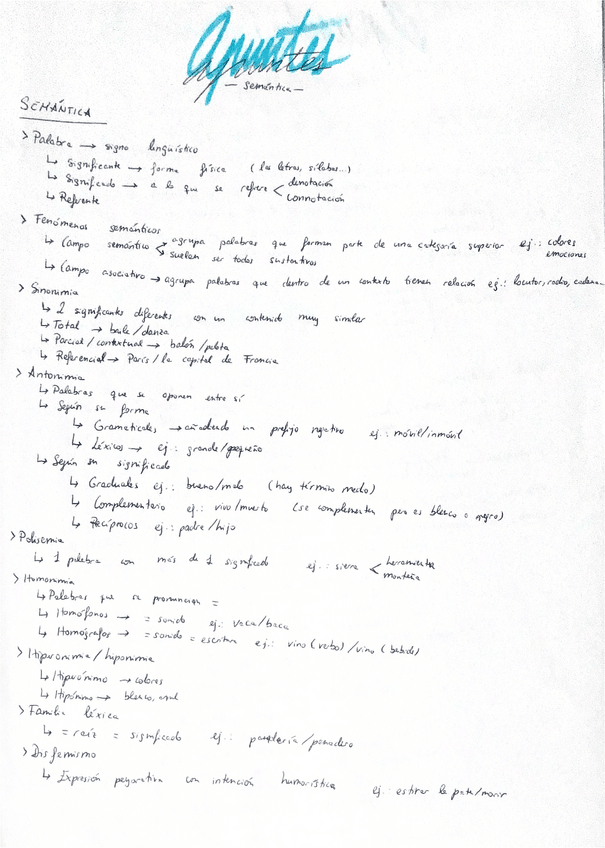 apuntes
apuntes
— semántica —
SEMÁNTICA
> Palabra → signo lingüístico
↳ Significante → forma física (las letras, sílabas...)
↳ Significado → a lo que se refiere < denotación
connotación
↳ Referente
> Fenómenos semánticos
↳ Campo semántico agrupa palabras que forman parte de una categoría superior ej.: colores
emociones
suelen ser todos sustantivos
↳ Campo asociativo → agrupa palabras que dentro de un contexto tienen relación ej.: locutor, radio, cadena...
> Sinonimia
↳ 2 significantes diferentes con un contenido muy similar
↳ Total → baile/danza
↳ Parcial/contextual → balón/pelota
↳ Referencial → París/la capital de Francia
> Antonimia
↳ Palabras que se oponen entre sí
↳ Según su forma
↳ Gramaticales → añadiendo un prefijo negativo ej.: móvil/inmóvil
↳ Léxicos → ej.: grande/pequeño
↳ Según su significado
↳ Graduales ej.: bueno/malo (hay término medio)
↳ Complementario ej.: vivo/muerto (se complementan pero es blanco o negro)
↳ Recíprocos ej.: padre/hijo
> Polisemia
↳ 1 palabra con más de 1 significado ej.: sierra < herramienta
montaña
> Homonimia
↳ Palabras que se pronuncian =
↳ Homófonos → = sonido ej.: vaca/baca
↳ Homógrafos → = sonido = escritura ej.: vino (verbo)/vino (bebida)
> Hiperonimia/hiponimia
↳ Hiperónimo → colores
↳ Hipónimo → blanco, azul
> Familia léxica
↳ = raíz = significado ej.: panadería/panadero
> Disfemismo
↳ Expresión peyorativa con intención humorística ej.: estirar la pata/morir